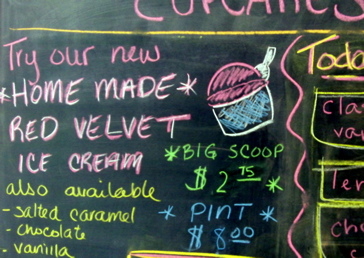 CUPCAKES
Try our new
*HOME MADE*
RED VELVET
ICE CREAM
also available
- salted caramel
- chocolate
- vanilla
*BIG SCOOP
$2 75 *
* PINT *
$8.00